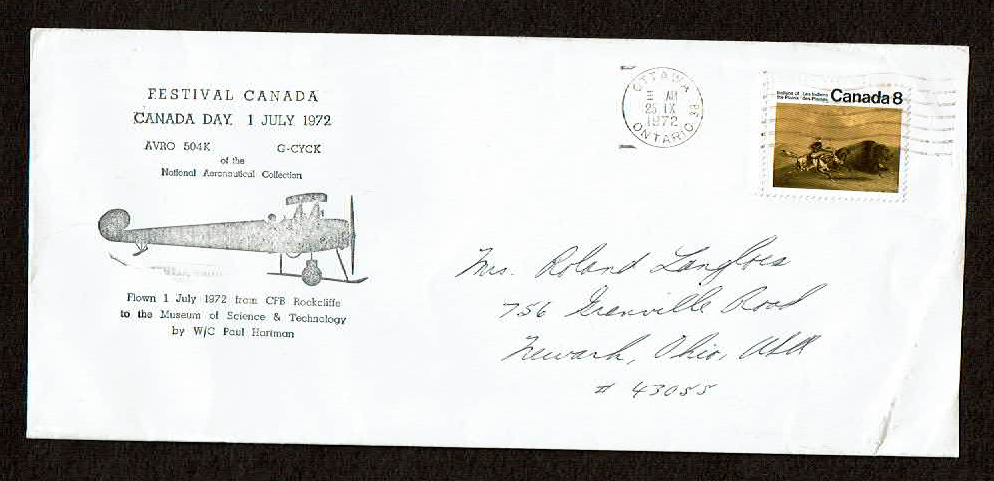 FESTIVAL CANADA
CANADA DAY. 1 JULY 1972
AVRO 504K G-CYCK
of the
National Aeronautical Collection
Flown 1 July 1972 from CFB Rockcliffe
to the Museum of Science & Technology
by W/C Paul Hartman
OTTAWA
AM
25 IX
1972
ONTARIO
Indians of the Plains Les Indiens des Plaines Canada 8
Mrs. Roland Langlois
756 Grenville Road
Newark, Ohio, USA
# 43055